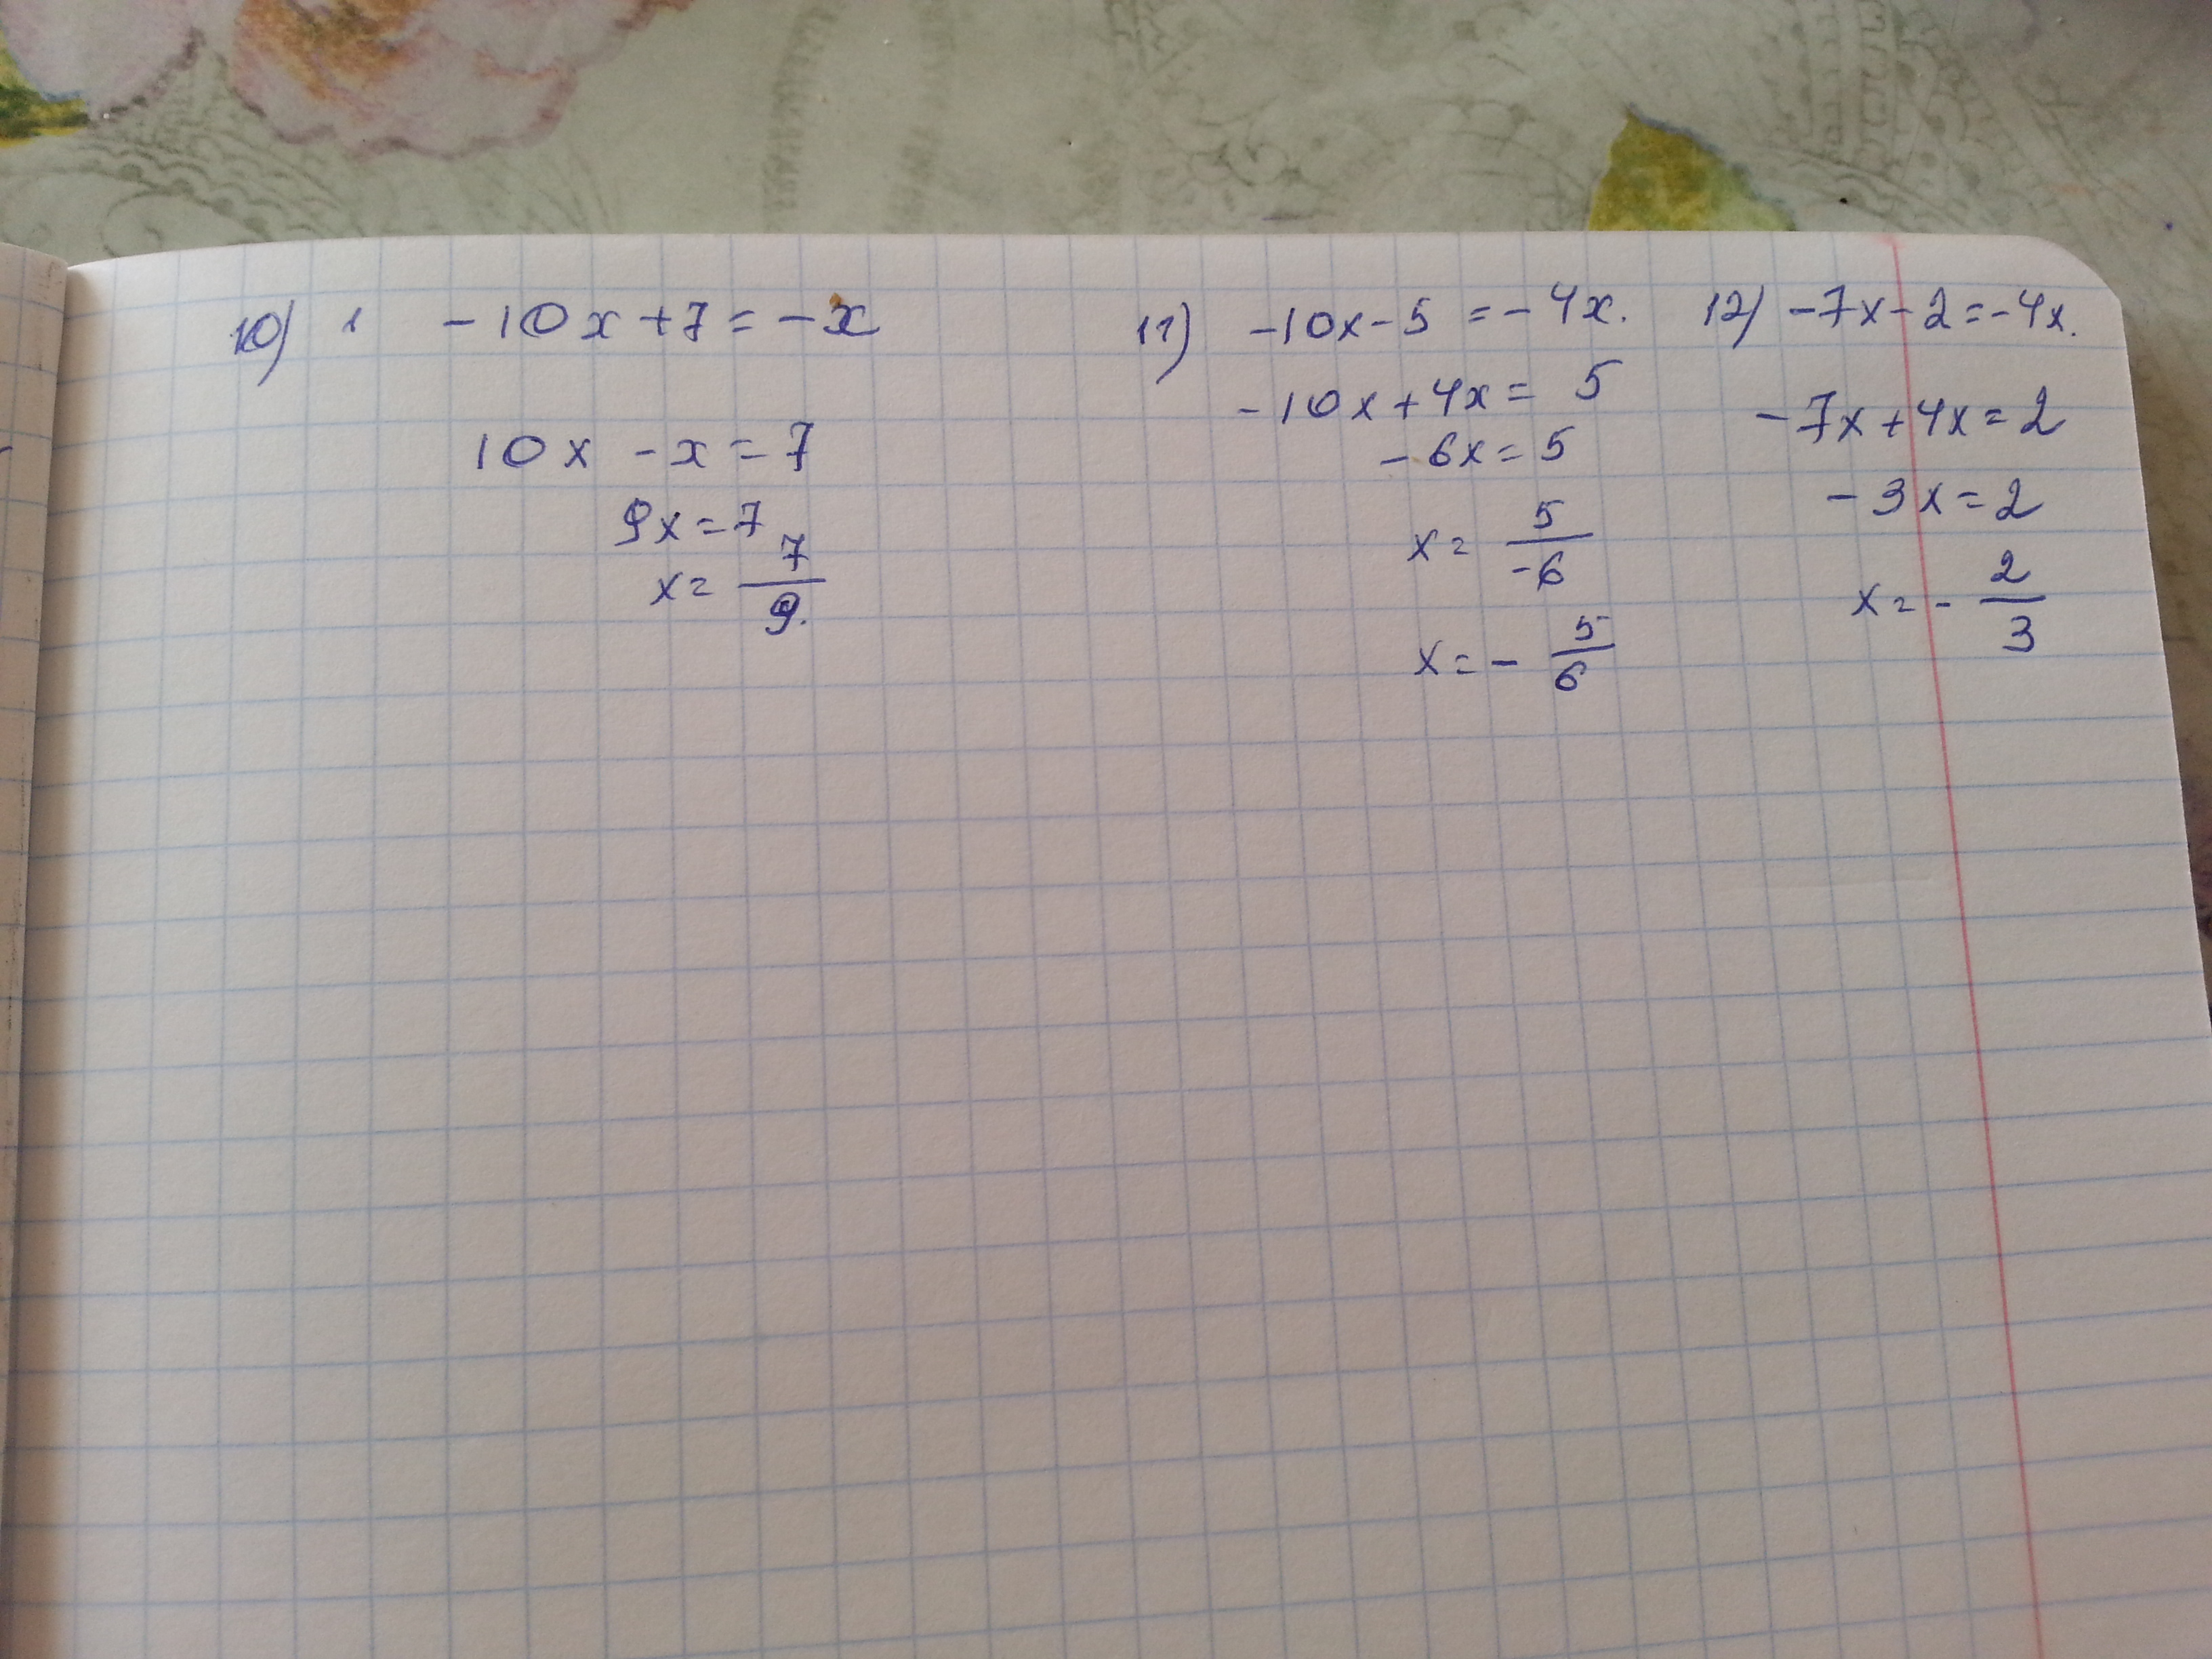 10) 1 -10x+7=-x
10x -x=7
9x=7
x= 7/9.
11) -10x-5 =-4x.
-10x+4x= 5
-6x=5
x= 5/-6
x=- 5/6
12) -7x-2=-4x.
-7x+4x=2
-3x=2
x=- 2/3